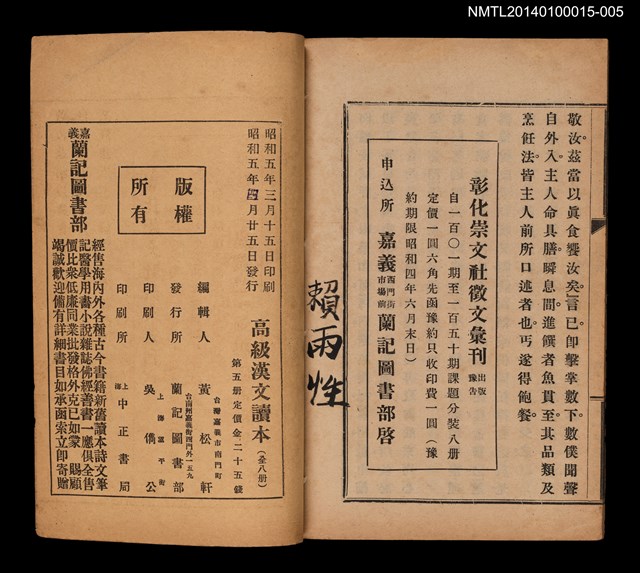 NMTL20140100015-005
敬汝茲當以眞食饗汝矣』言已卽擊掌數下數僕聞聲
自外入主人命具膳瞬息間進饌者魚貫至其品類及
烹飪法皆主人前所口述者也丐遂得飽餐
彰化崇文社徵文彙刊 出版豫告
自一百〇一期至一百五十期課題分裝八册
定價一圓六角先函豫約只收印費一圓（豫
約期限昭和四年六月末日）
申込所 嘉義西門街市場前 蘭記圖書部啓
賴雨性
昭和五年三月十五日印刷
昭和五年四月廿五日發行
高級漢文讀本（全八册）
第五册定價金二十五錢
版權所有
台灣嘉義市南門町
編輯人 黃松軒
台南州嘉義街西門外一五九
發行所 蘭記圖書部
上海寧平街
印刷人 吳僑公
印刷所 上海中正書局
嘉義蘭記圖書部
經售海內外各種古今書籍新舊讀本詩文筆
記醫學用書小說雜誌佛經善書一應俱全售
價比衆低廉同業批發格外克已如蒙 賜顧
竭誠歡迎備有詳細書目如承函索立卽寄贈